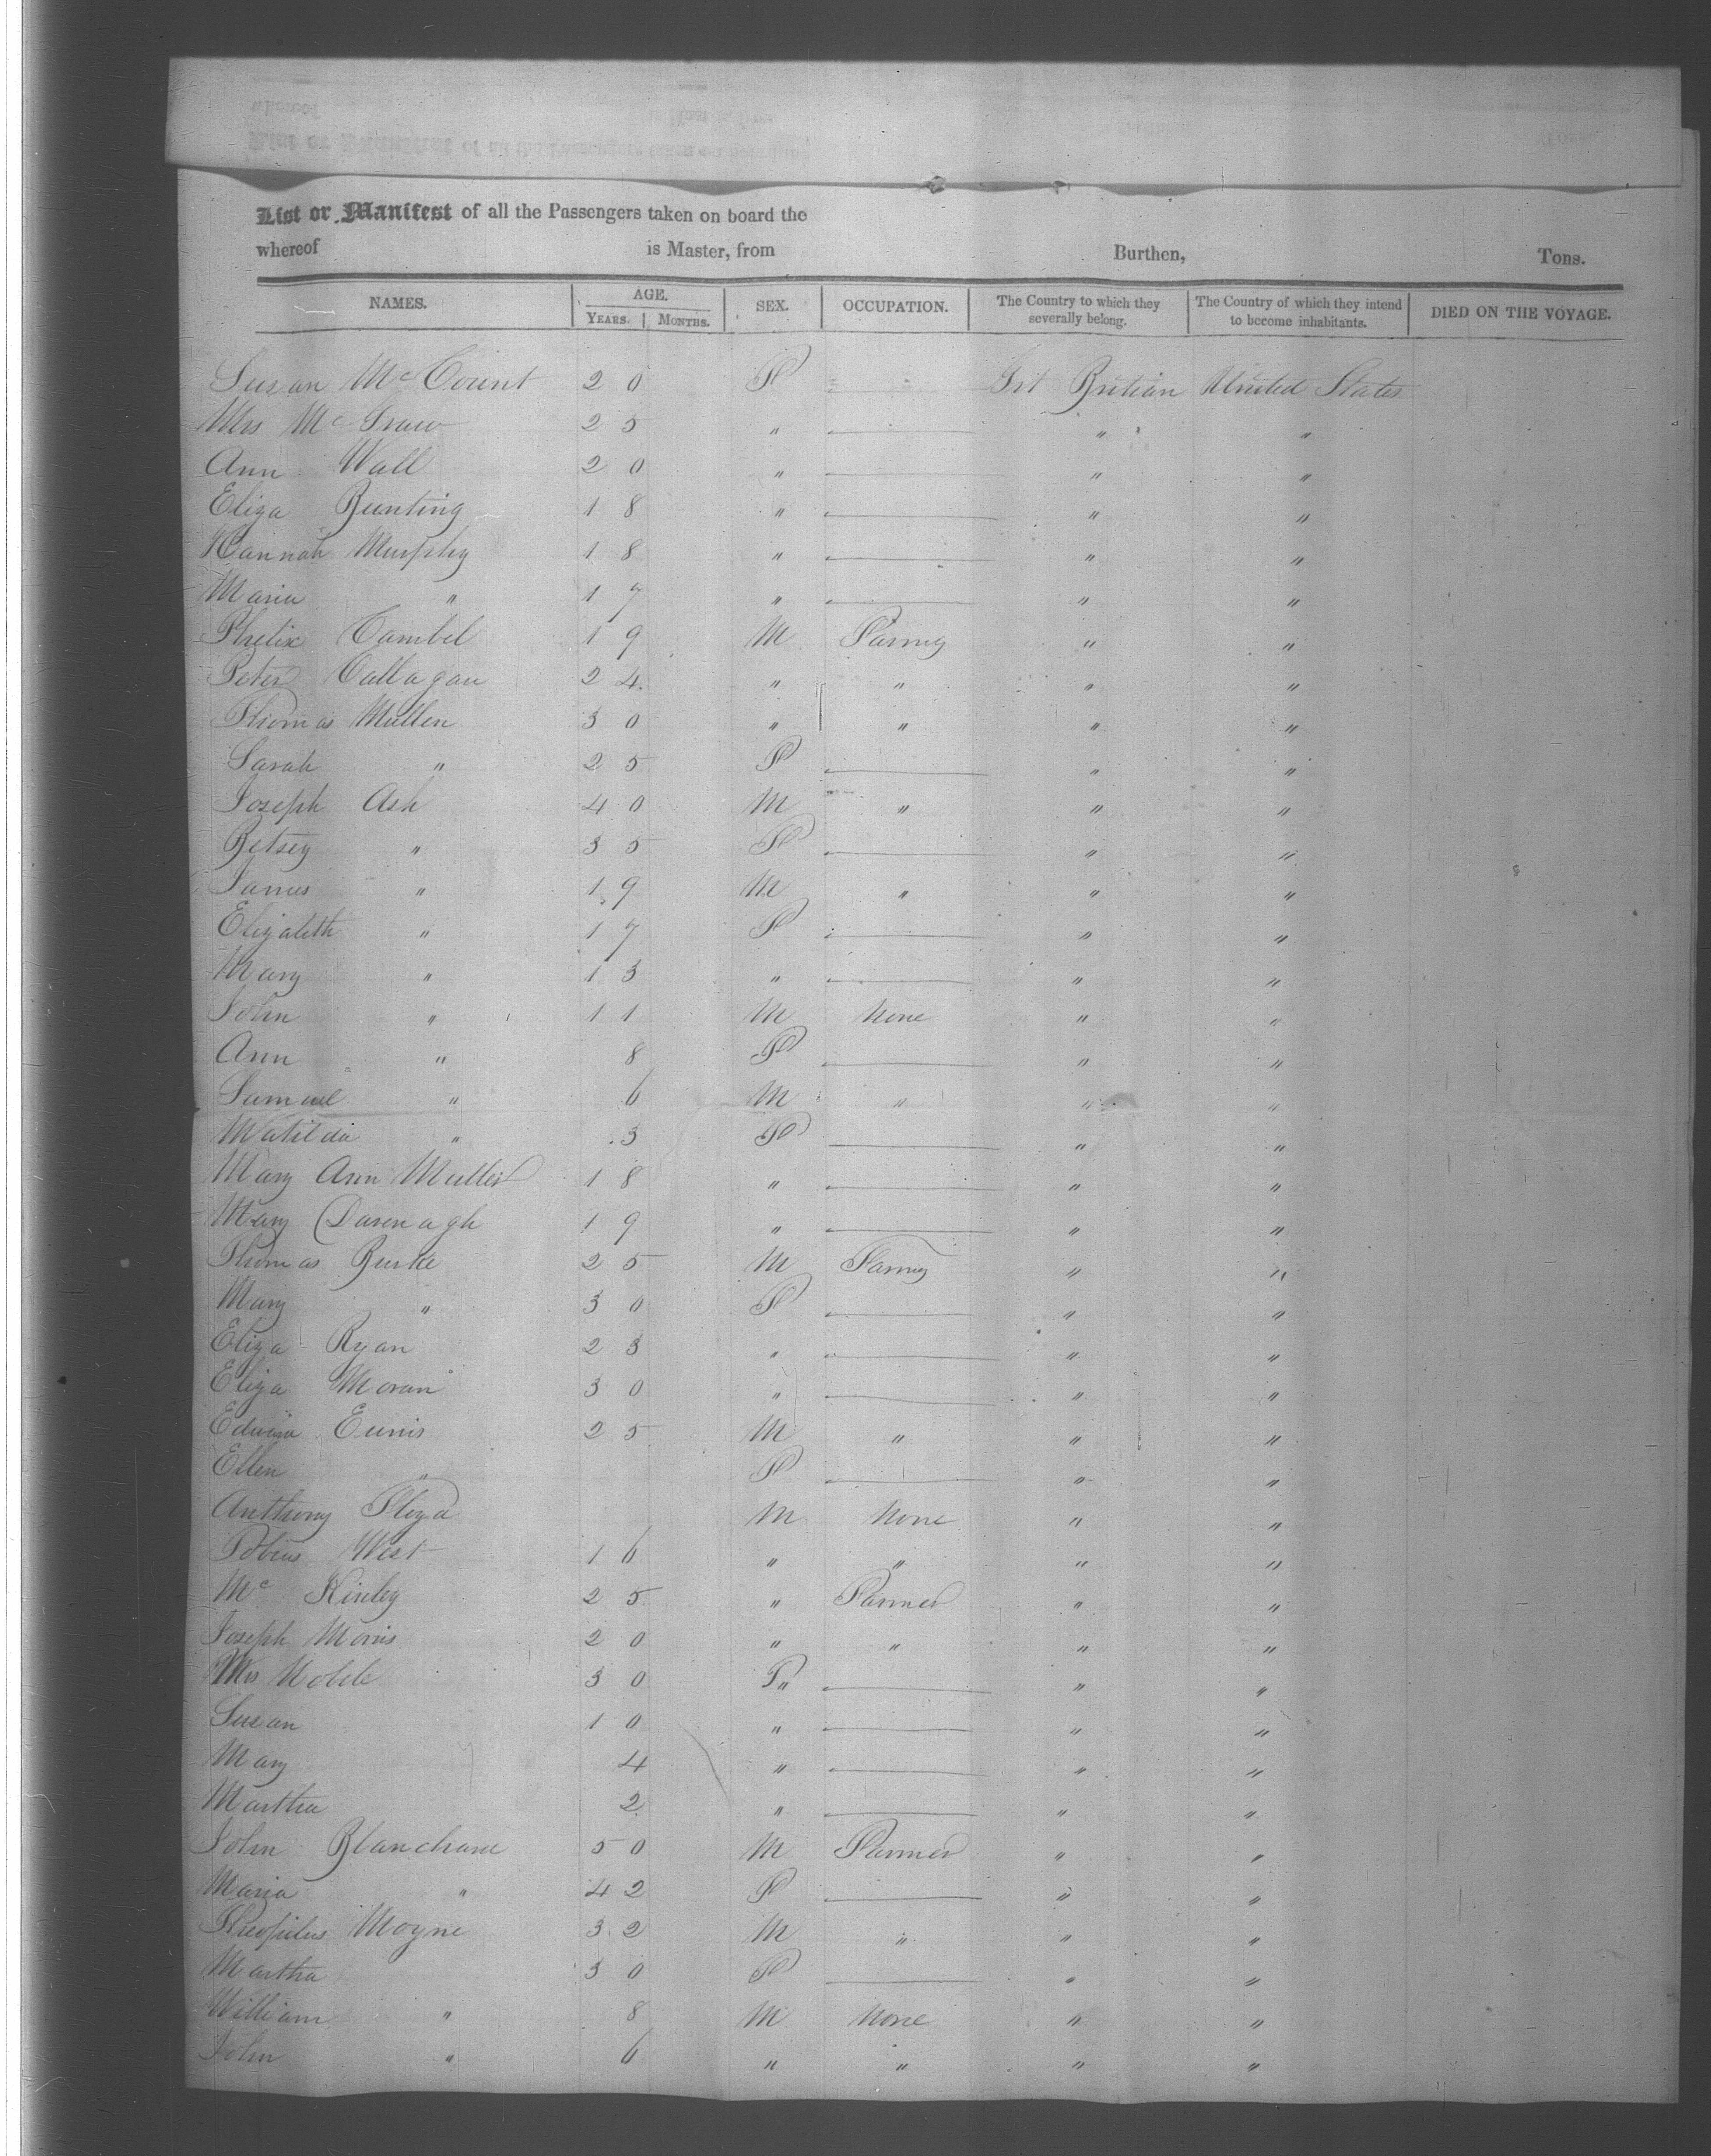 List or Manifest of all the Passengers taken on board the
whereof is Master, from Burthen, Tons.
NAMES. AGE. YEARS. MONTHS. SEX. OCCUPATION. The Country to which they severally belong. The Country of which they intend to become inhabitants. DIED ON THE VOYAGE.
Susan McCount 20 F Grt Britian United States
Mrs McGraw 25 " " "
Ann Wall 20 " " "
Eliza Bunting 18 " " "
Hannah Murphy 18 " " "
Maria " 17 " " "
Phelix Cambel 19 M " "
Peter Callagan 24 " " " "
Thomas Mullen 30 " " " "
Sarah " 25 F " "
Joseph Ash 40 M " " "
Betsey " 35 F " "
James " 19 M " " "
Elizabeth " 17 F " "
Mary " 13 " " "
John " 11 M None " "
Ann " 8 F " "
Samuel " 6 M " " "
Matilda " 3 F " "
Mary Ann 18 " " "
Mary 19 " " "
Thomas Burke 25 M " "
Mary " 30 F " "
Eliza Ryan 23 " " "
Eliza Moran 30 " " "
25 M " " "
Ellen " F " "
Anthony M None " "
West 16 " " " "
Mc 25 " Farmer " "
Joseph Morris 20 " " " "
Mrs Noble 30 F " "
Susan 10 " " "
Mary 4 " " "
Martha 2 " " "
John 50 M Farmer " "
Maria " 42 F " "
Moyne 32 M " " "
Martha 30 F " "
William " 8 M None " "
John " 6 " " " "